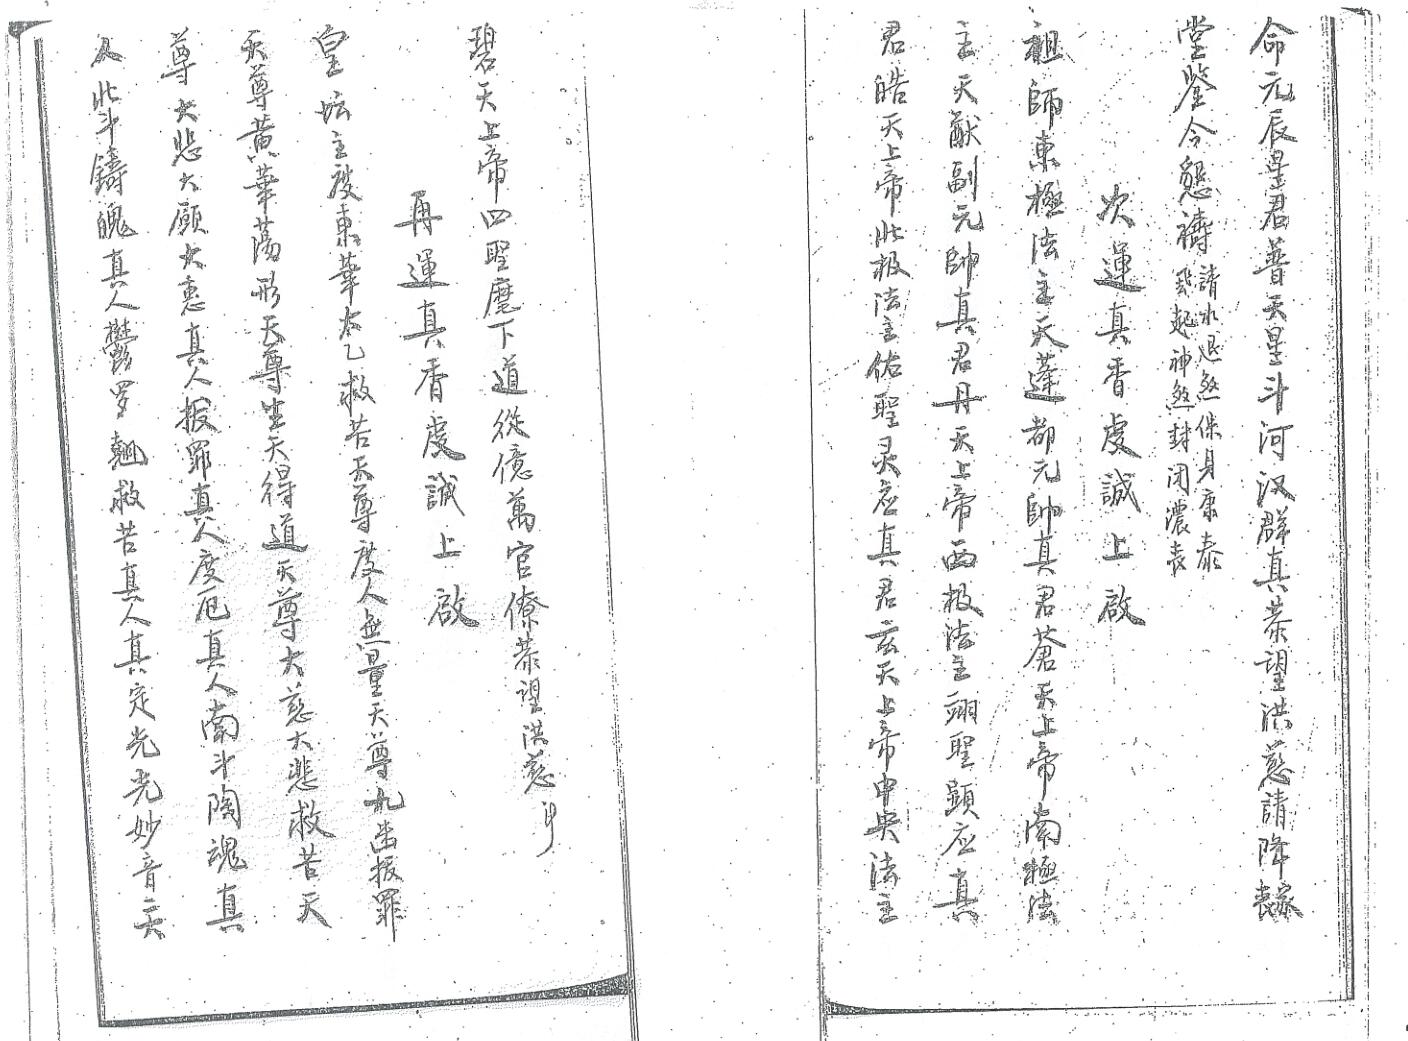 命元辰星君普天星斗河汉群真恭望洪慈請降喪家
堂鑒今懇禱請水退煞保身康泰
發起神煞封閉濃表
次運真香虔誠上啟
祖師東極法主天蓬都元帥真君蒼天上帝南極法
主天猷副元帥真君丹天上帝西极法主翊聖顕应真
君皓天上帝北极法主佑聖灵应真君玄天上帝中央法主
碧天上帝四聖麾下道從億萬官僚恭望洪慈
再運真香虔誠上啟
皇坛主度東華太乙救苦天尊度人無量天尊九幽拔罪
天尊黄華蕩形天尊生天得道天尊大慈大悲救苦天
尊大悲大願大惠真人拔罪真人度厄真人南斗陶魂真
人北斗鑄魄真人鬱罗翹救苦真人真定光光妙音二大